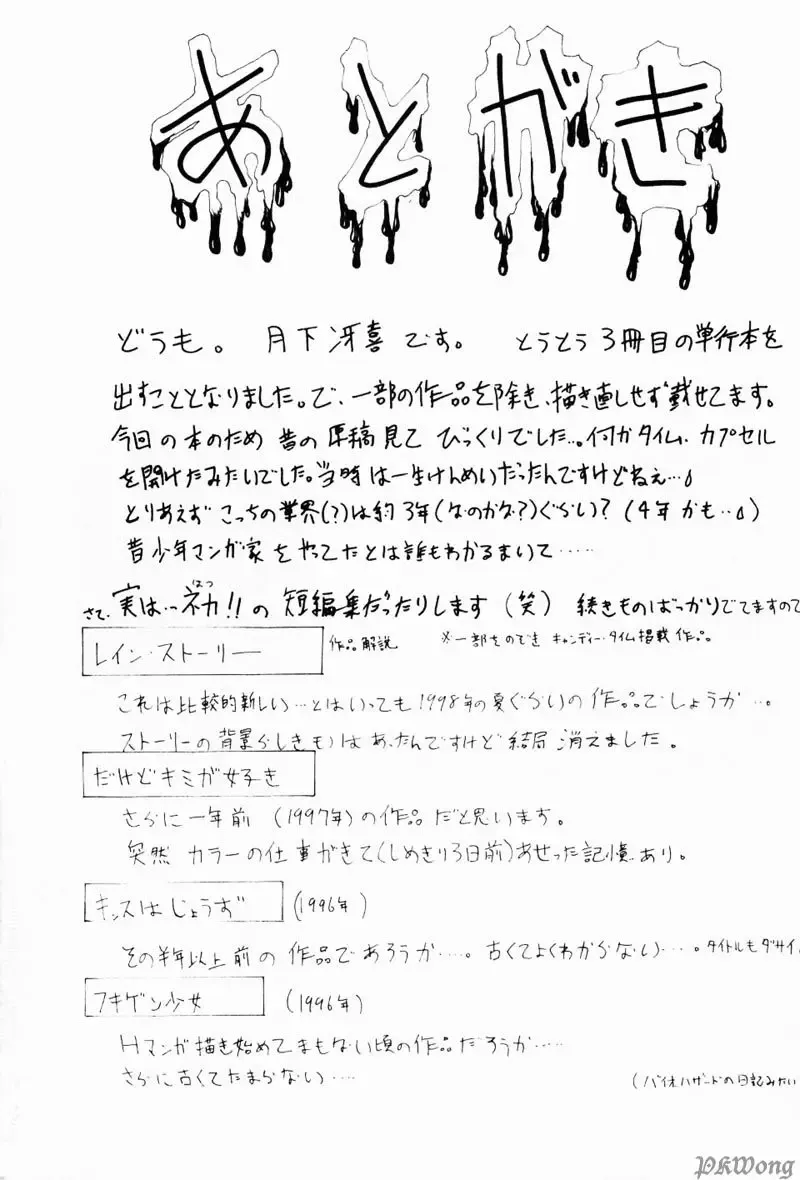 あとがき
どうも。 月下冴喜です。 とうとう3冊目の単行本を
出すこととなりました。で、一部の作品を除き、描き直しせず載せてます。
今回の本のため昔の原稿見てびっくりでした…。何かタイム・カプセル
を開けたみたいでした。当時は一生けんめいだったんですけどねえ…。
とりあえずこっちの業界(?)は約3年(なのかな?)ぐらい?(4年かも…)
昔少年マンガ家をやってたとは誰もわかるまいて……
さて、実は…初!!の短編集だったりします(笑) 続きものばっかりでてますので
はつ
レイン・ストーリー
作品解説 ※一部をのぞき キャンディー・タイム掲載作品。
これは比較的新しい…とはいっても1998年の夏ぐらいの作品でしょうか…。
ストーリーの背景らしきものはあったんですけど結局消えました。
だけどキミが好き
さらに一年前 (1997年)の作品だと思います。
突然カラーの仕事がきて(しめきり3日前)あせった記憶あり。
キッスはじょうず (1996年)
その半年以上前の作品であろうか……。古くてよくわからない…。タイトルもダサイ。
フキゲン少女 (1996年)
Hマンガ描き始めてまもない頃の作品だろうか……
さらに古くてたまらない……
(バイオハザードの日記みたい
PKWong